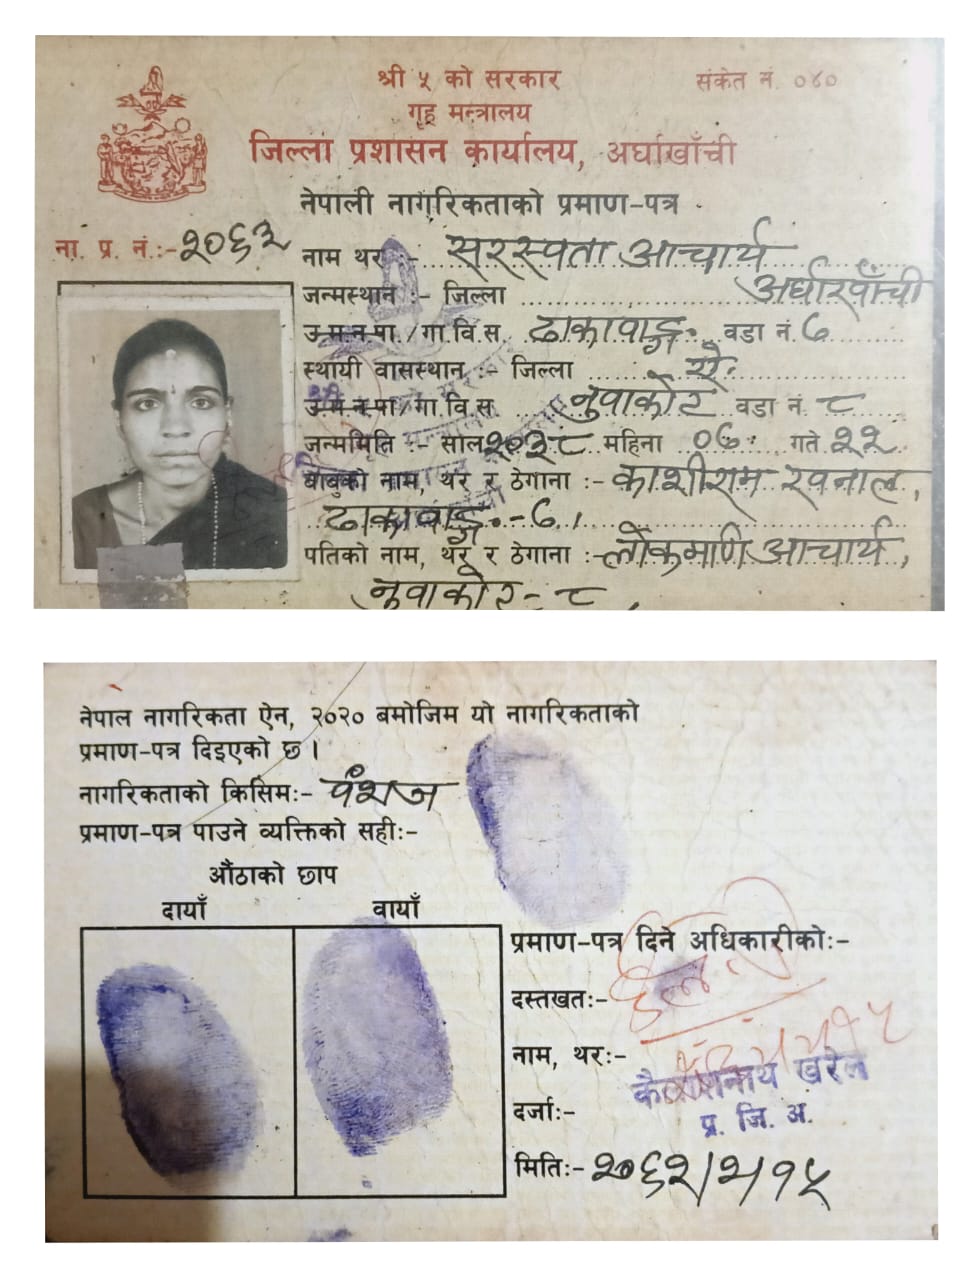 श्री ५ को सरकार
संकेत नं. ०४०
गृह मन्त्रालय
जिल्ला प्रशासन कार्यालय, अर्घाखाँची
नेपाली नागरिकताको प्रमाण-पत्र
ना. प्र. नं.:- २०६३
नाम थर :- सरस्वता आचार्य
जन्मस्थान :- जिल्ला अर्घाखाँची
उ.म.न.पा./गा.वि.स. ढाकावाङ्ग वडा नं. ७
स्थायी वासस्थान :- जिल्ला ऐ.
उ.म.न.पा/गा.वि.स नुवाकोट वडा नं. ८
जन्ममिति :- साल २०३८ महिना ०७ गते २२
बाबुको नाम, थर र ठेगाना :- काशीराम खनाल,
ढाकावाङ्ग - ७,
पतिको नाम, थर र ठेगाना :- लोकमणि आचार्य,
नुवाकोट - ८,
नेपाल नागरिकता ऐन, २०२० बमोजिम यो नागरिकताको
प्रमाण-पत्र दिइएको छ ।
नागरिकताको किसिम:- वंशज
प्रमाण-पत्र पाउने व्यक्तिको सही:-
औंठाको छाप
दायाँ वायाँ
प्रमाण-पत्र दिने अधिकारीको:-
दस्तखत:-
नाम, थर:- खरेल
दर्जा:- प्र. जि. अ.
मिति:- २०६२/२/१५